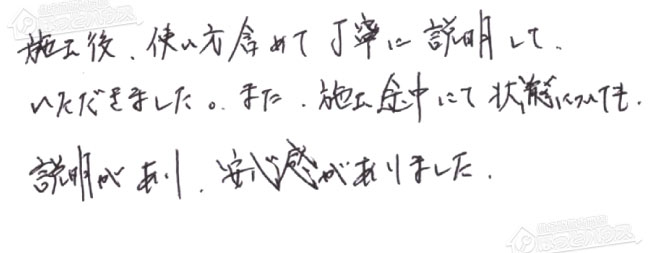 施工後、使い方含めて丁寧に説明して、
いただきました。また、施工途中にて状態についても、
説明があり、安心感がありました、